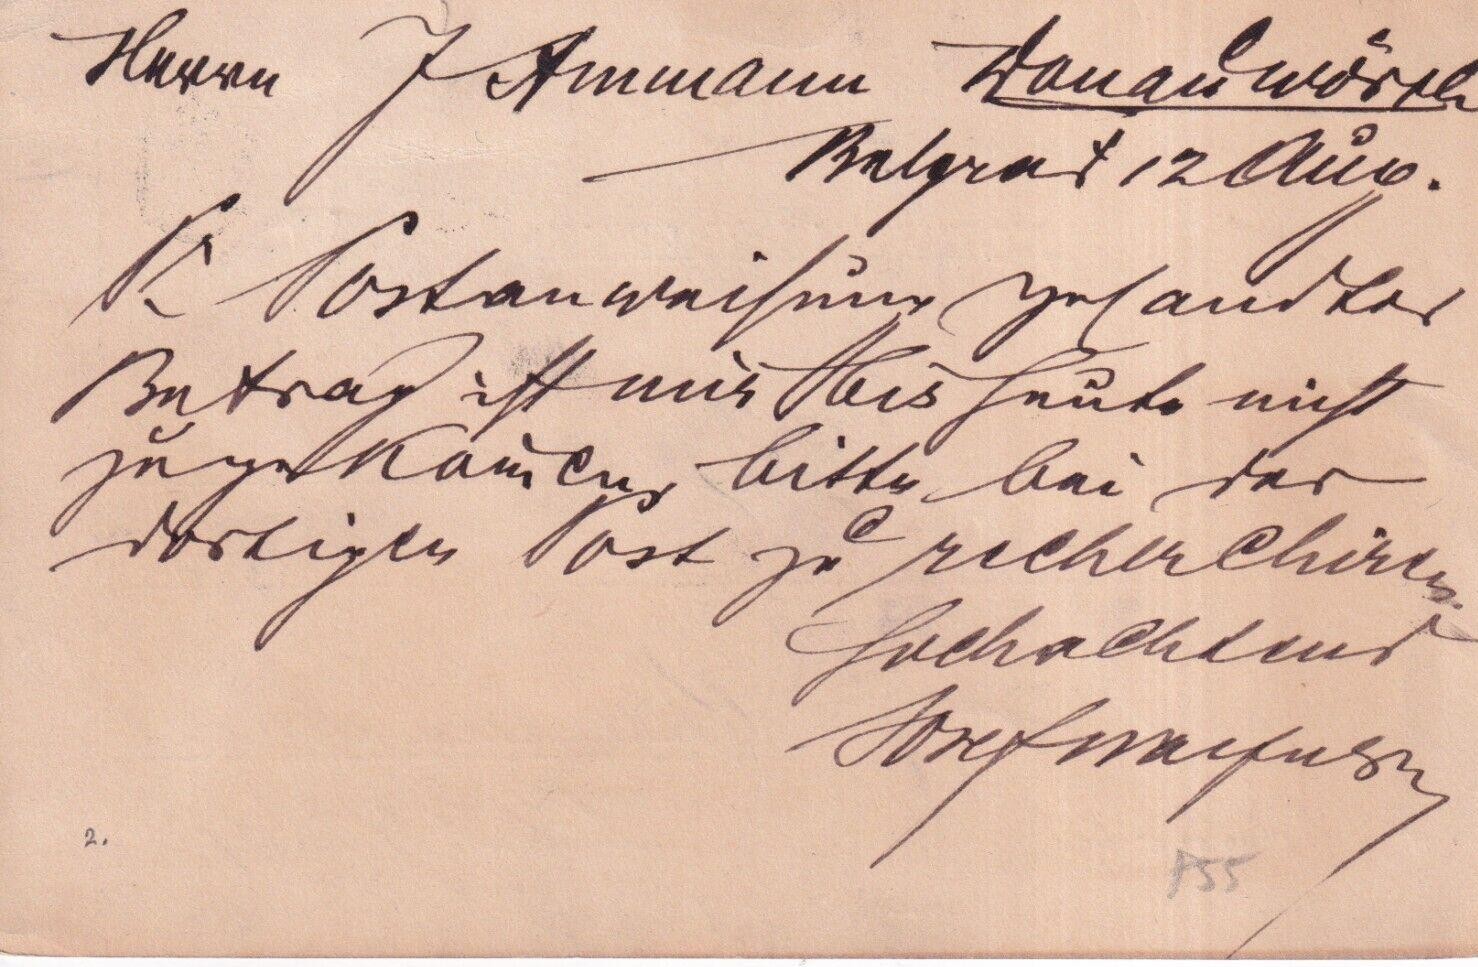 Herrn J Ammann Donauwörth
Belgrad 12 Aug.
Postanweisung gesandter
Betrag ist mir bis heute nicht
zugekommen, bitte bei der
dortigen Post zu recherchiren.
Hochachtend
Josef
2.
P55